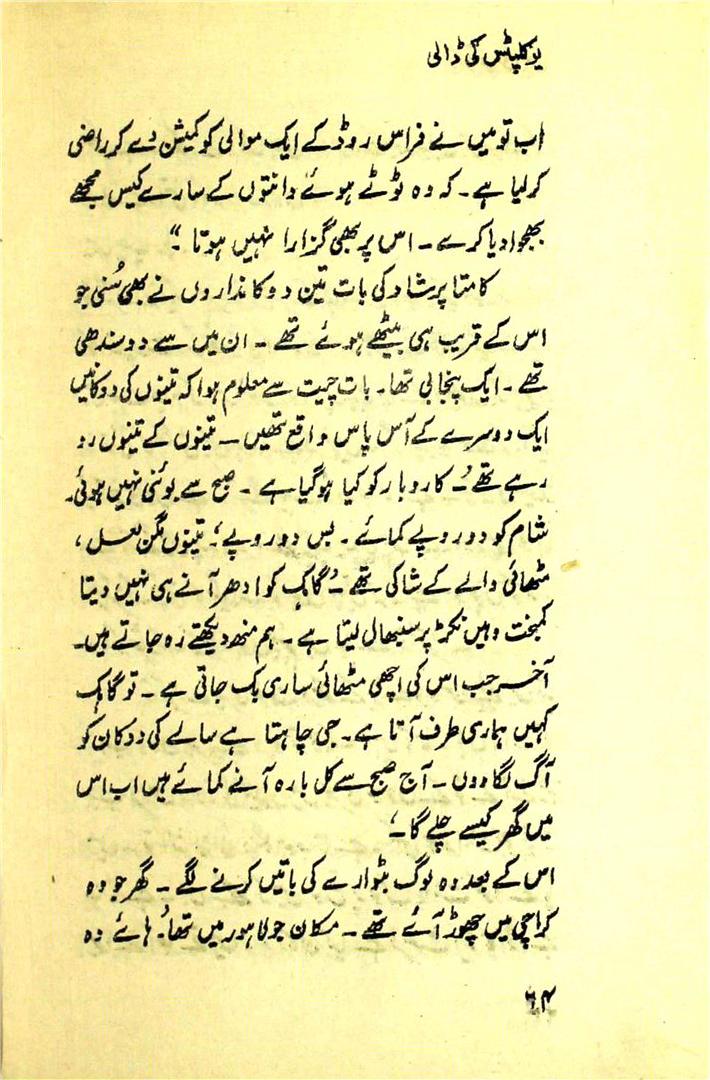 یوکلپٹس کی ڈالی
اب تو میں نے فراس روڈ کے ایک موالی کو کمیشن دے کر راضی
کر لیا ہے۔ کہ وہ ٹوٹے ہوئے دانتوں کے سارے کیس مجھے
بھجوا دیا کرے۔ اس پر بھی گزارا نہیں ہوتا ۔"
کامتا پرشاد کی بات تین دوکانداروں نے بھی سُنی جو
اس کے قریب ہی بیٹھے ہوئے تھے ۔ ان میں سے دو سندھی
تھے ۔ ایک پنجابی تھا۔ بات چیت سے معلوم ہوا کہ تینوں کی دوکانیں
ایک دوسرے کے آس پاس واقع تھیں ۔ تینوں کے تینوں رو
رہے تھے ۔' کاروبار کو کیا ہو گیا ہے ۔ صبح سے بوئنی نہیں ہوئی۔
شام کو دو روپے کمائے ۔ بس دو روپے ؛' تینوں مگن لعل ،
مٹھائی والے کے شاکی تھے ۔' گاہک کو ادھر آنے ہی نہیں دیتا
کمبخت وہیں نکڑ پر سنبھال لیتا ہے ۔ ہم منھ دیکھتے رہ جاتے ہیں۔
آخر جب اس کی اچھی مٹھائی ساری بک جاتی ہے ۔ تو گاہک
کہیں ہماری طرف آتا ہے ۔ جی چاہتا ہے سالے کی دوکان کو
آگ لگا دوں ۔ آج صبح سے کل بارہ آنے کمائے ہیں اب اس
میں گھر کیسے چلے گا ۔'
اس کے بعد وہ لوگ بٹوارے کی باتیں کرنے لگے ۔ گھر جو وہ
کراچی میں چھوڑ آئے تھے ۔ مکان جو لاہور میں تھا۔' ہائے وہ
۶۴